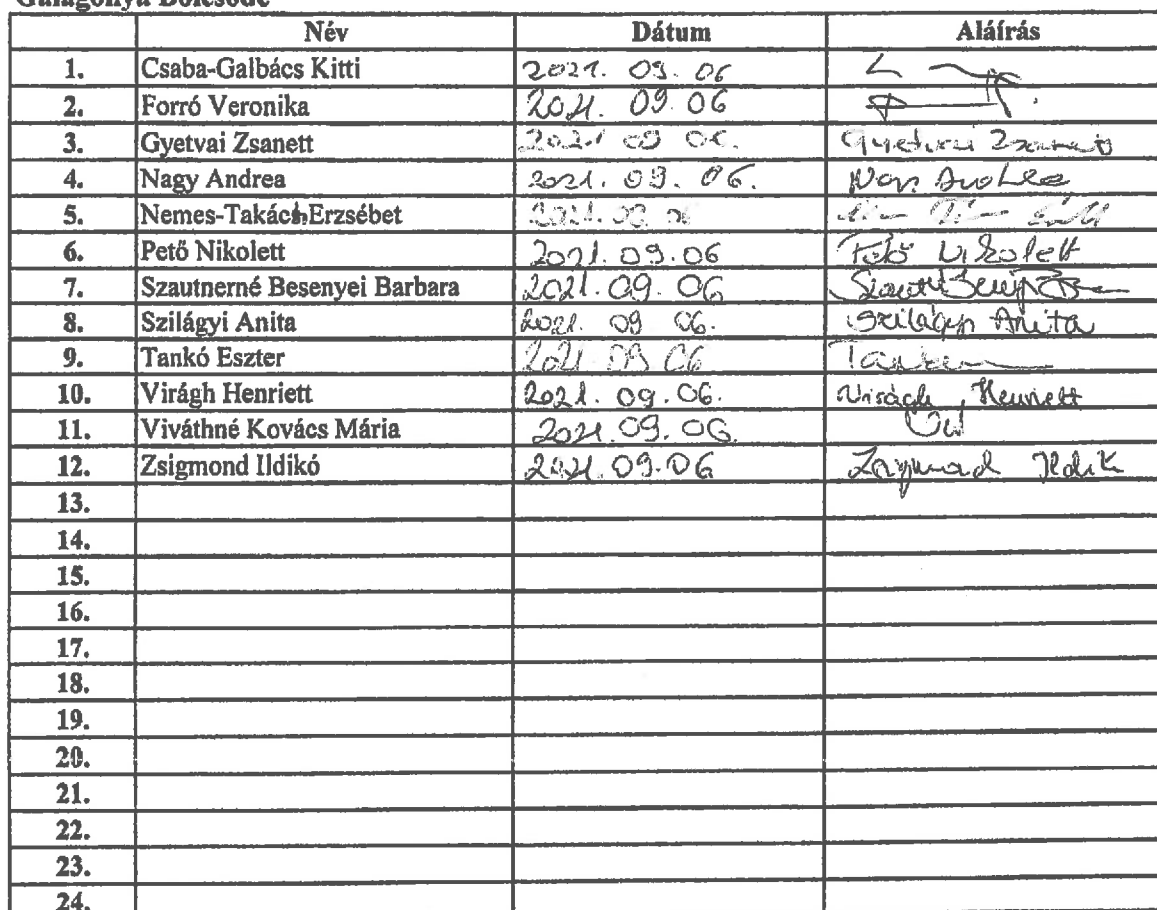 Galagonya Bölcsőde
Név Dátum Aláírás
1. Csaba-Galbács Kitti 2021. 09. 06
2. Forró Veronika 2021. 09. 06
3. Gyetvai Zsanett 2021 09 06. Gyetvai Zsanett
4. Nagy Andrea 2021. 09. 06. Nagy Andrea
5. Nemes-Takács Erzsébet 2021. 09. 06
6. Pető Nikolett 2021. 09. 06 Pető Nikolett
7. Szautnerné Besenyei Barbara 2021. 09. 06
8. Szilágyi Anita 2021. 09 06. Szilágyi Anita
9. Tankó Eszter 2021. 09 06
10. Virágh Henriett 2021. 09. 06. Virágh Henriett
11. Viváthné Kovács Mária 2021. 09. 06.
12. Zsigmond Ildikó 2021. 09. 06 Zsigmond Ildik
13.
14.
15.
16.
17.
18.
19.
20.
21.
22.
23.
24.